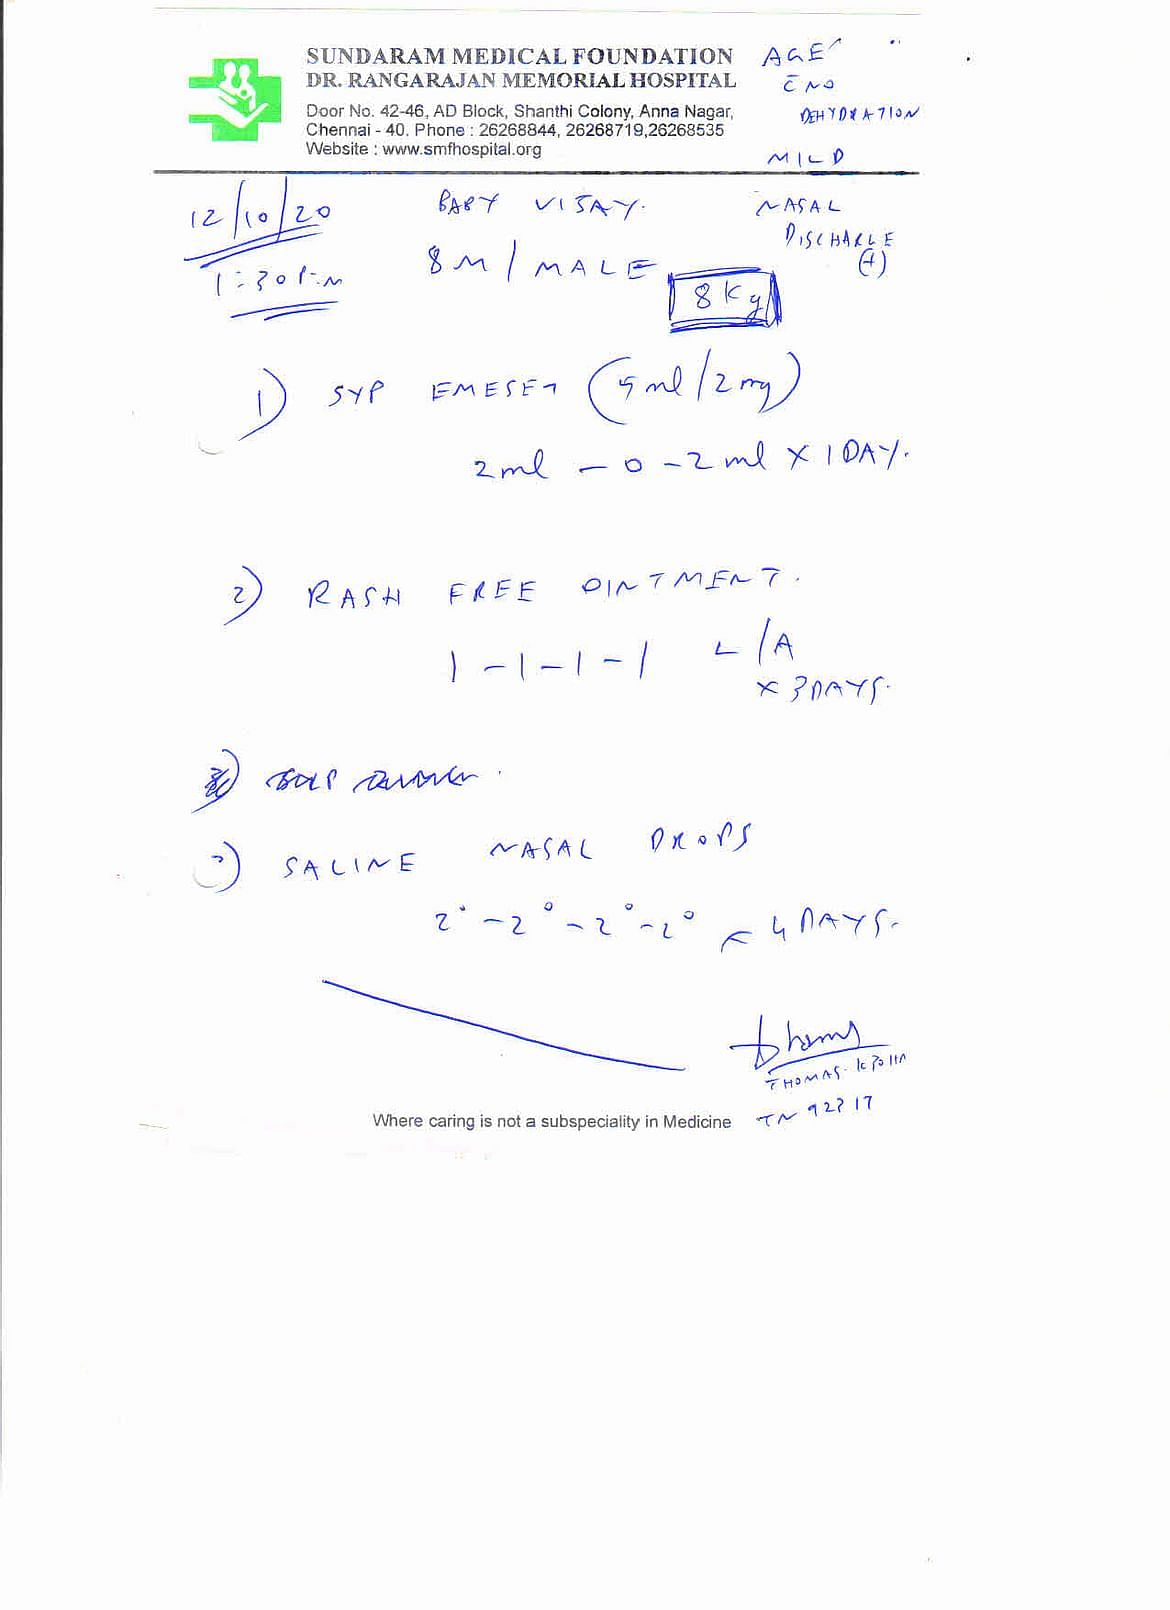 SUNDARAM MEDICAL FOUNDATION
DR. RANGARAJAN MEMORIAL HOSPITAL
Door No. 42-46, AD Block, Shanthi Colony, Anna Nagar,
Chennai - 40. Phone : 26268844, 26268719,26268535
Website : www.smfhospital.org
AGE
c̄ NO
DEHYDRATION
MILD
NASAL
DISCHARGE
(+)
12/10/20
1:30 P.M
BABY VIJAY.
8M / MALE
8 Kg
1) SYP EMESET (5ml/2mg)
2ml - 0 - 2ml X 1 DAY.
2) RASH FREE OINTMENT.
1 - 1 - 1 - 1 L/A
x 3 DAYS.
3) SALINE NASAL DROPS
2° - 2° - 2° - 2° x 4 DAYS.
THOMAS.
TN 92317
Where caring is not a subspeciality in Medicine